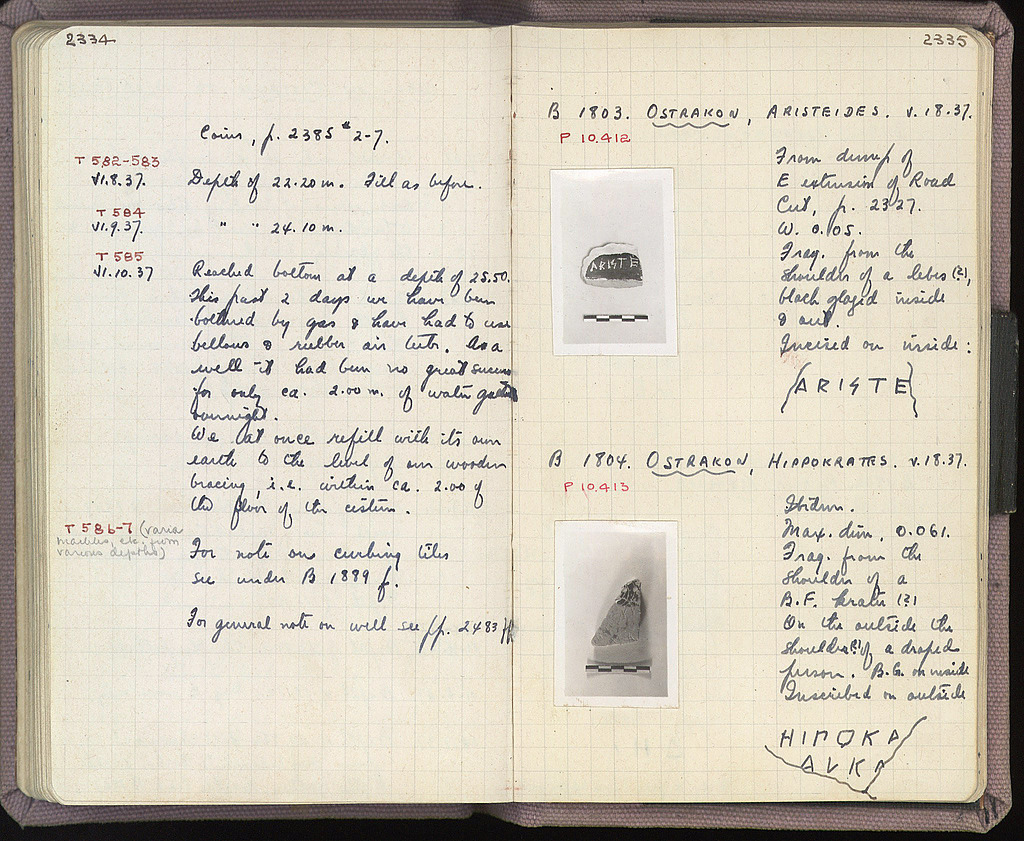 2334
Coins, p. 2385 # 2-7.
T 582-583
VI.8.37. Depth of 22.20 m. Fill as before.
T 584
VI.9.37. " " 24.10 m.
T 585
VI.10.37 Reached bottom at a depth of 25.50.
This past 2 days we have been
bothered by gas & have had to use
bellows & rubber air tube. As a
well it had been no great success
for only ca. 2.00 m. of water
overnight.
We at once refill with its own
earth to the level of our wooden
bracing, i.e. within ca. 2.00 of
the floor of the cistern.
T 586-7 (varia
marbles, etc. from
various depths)
For note on curbing tiles
see under B 1889 f.
For general note on well see pp. 2483 ff
2335
B 1803. OSTRAKON, ARISTEIDES. V.18.37.
P 10,412
From dump of
E extension of Road
Cut, p. 2327.
W. 0.05.
Frag. from the
shoulder of a lebes (?),
black glazed inside
& out.
Incised on inside:
ARISTE
ARISTE
B 1804. OSTRAKON, HIPPOKRATES. V.18.37.
P 10,413
Ibidem.
Max. dim. 0.061.
Frag. from the
shoulder of a
B.F. krater (?)
On the outside the
shoulder(?) of a draped
person. B.G. on inside
Inscribed on outside
HIΠOKΡ
AVKΛ